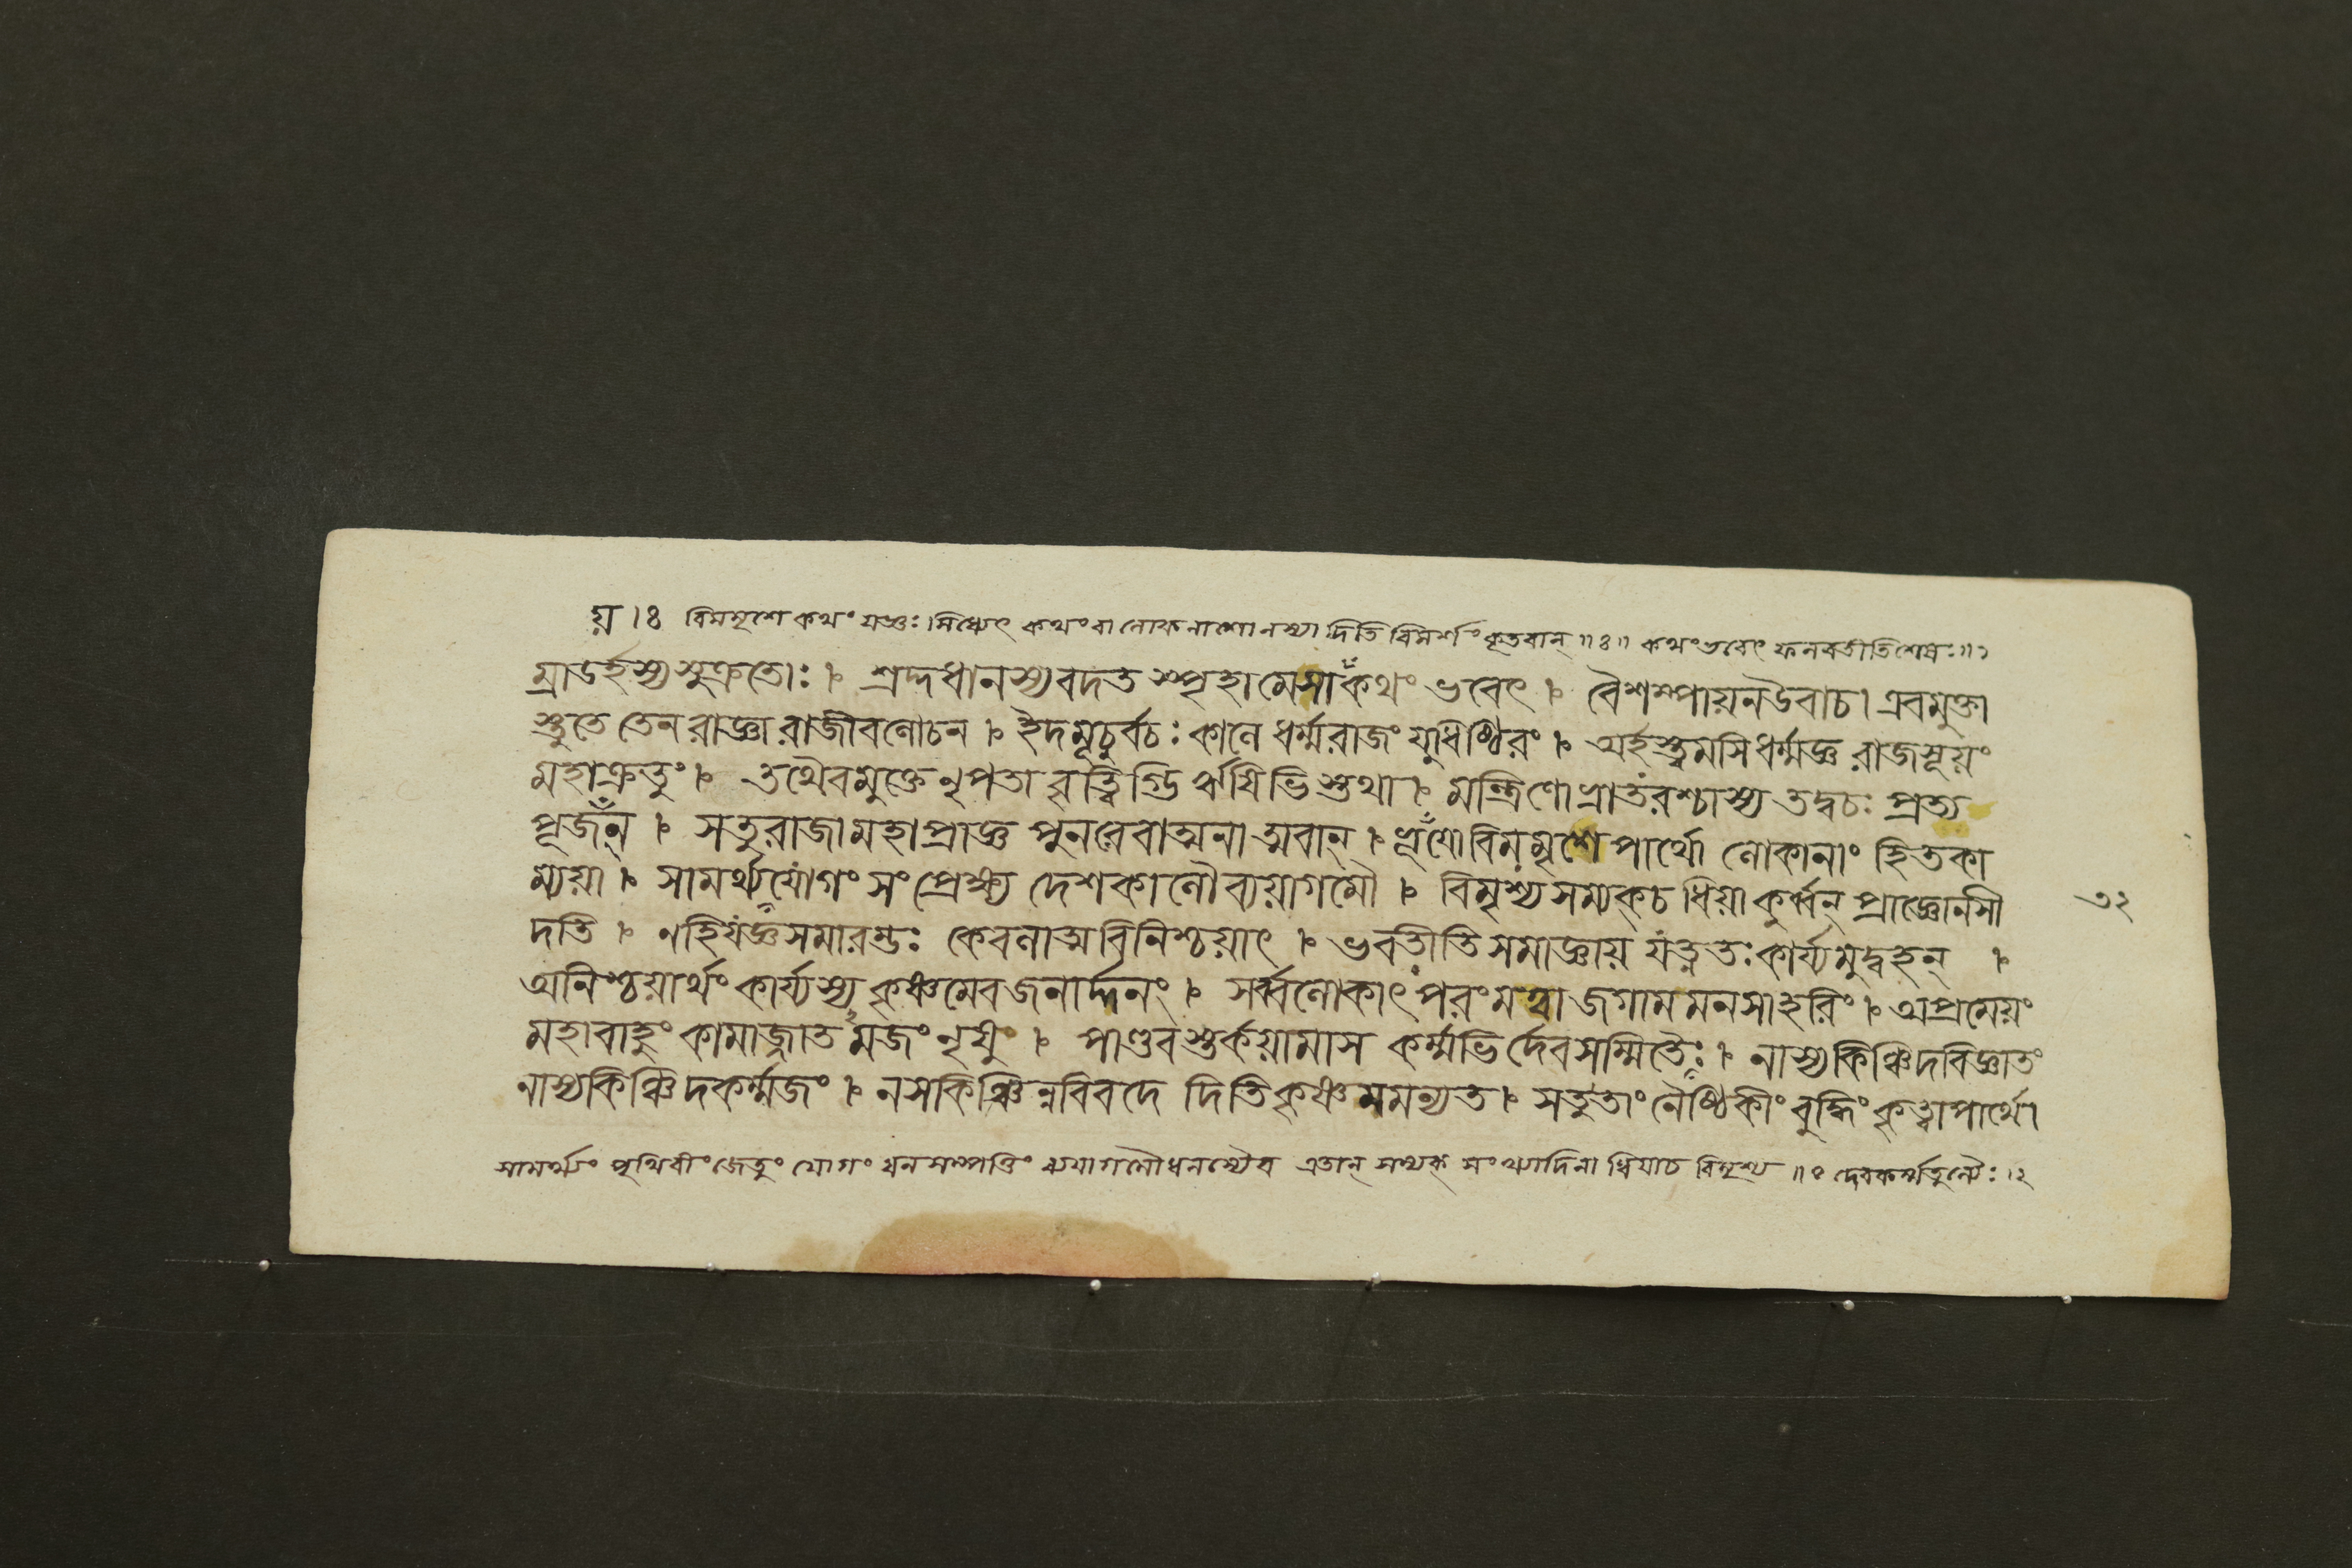 য়।ঃ বিমমৃশে কথং যজ্ঞঃ সিধ্যেৎ কথং বা লোকনাশো নস্যাদিতি বিমর্শং কৃতবান্ ॥ঃ॥ কথং ভবেৎ ফলবতীতি শেষঃ॥১
ম্রাডর্হস্য সুক্রতোঃ। শ্রদ্দধানস্য বদত স্পৃহা মে সা কথং ভবেৎ। বৈশম্পায়ন উবাচ। এবমুক্তা
স্তুতে তেন রাজ্ঞা রাজীবলোচন। ইদমূচুর্বচঃ কালে ধর্ম্মরাজং যুধিষ্ঠিরং। অর্হস্ত্বমসি ধর্ম্মজ্ঞ রাজসূয়ং
মহাক্রতুং। তথৈবমুক্তে নৃপতা বৃত্বিগ্ভি র্ঋষিভি স্তথা। মন্ত্রিণো ভ্রাতরশ্চাস্য তদ্বচঃ প্রত্য
পূজয়ন্। সতু রাজা মহাপ্রাজ্ঞ পুনরেবাত্মনাত্মবান্। ভূয়ো বিমমৃশে পার্থো লোকানাং হিতকা
ম্যয়া। সামর্থ্যযোগং সংপ্রেক্ষ্য দেশকালৌ ব্যয়াগমৌ। বিমৃশ্য সম্যক্চ ধিয়া কুর্ব্বন্ প্রাজ্ঞো নসী
দতি। ণহি যজ্ঞসমারম্ভঃ কেবলাত্মবিনিশ্চয়াৎ। ভবতীতি সমাজ্ঞায় যত্নতঃ কার্য্যমুদ্বহন্।
অনিশ্চয়ার্থং কার্য্যস্য কৃষ্ণমেব জনার্দ্দনং। সর্ব্বলোকাৎ পরং মত্বা জগাম মনসা হরিং। অপ্রমেয়ং
মহাবাহুং কামাজ্জাত মজং নৃষুং। পাণ্ডব স্তর্কয়ামাস কর্ম্মভি র্দেবসম্মিতৈঃ। নাস্য কিঞ্চিদবিজ্ঞাতং
নাস্য কিঞ্চিদকর্ম্মজং। নস কিঞ্চিন্নবিবদে দিতি কৃষ্ণ মমন্যত। সতু তাং নৈষ্ঠিকীং বুদ্ধিং কৃত্বা পার্থো
সামর্থ্যং পৃথিবীং জেতুং যোগং ধনসম্পত্তিং ব্যয়াগমৌ ধনস্যৈব এতান্ সম্যক্ সংখ্যাদিনা ধিয়াচ বিমৃশ্য ॥ঃ দেবকর্ম্মতুল্যৈঃ।২
৩২